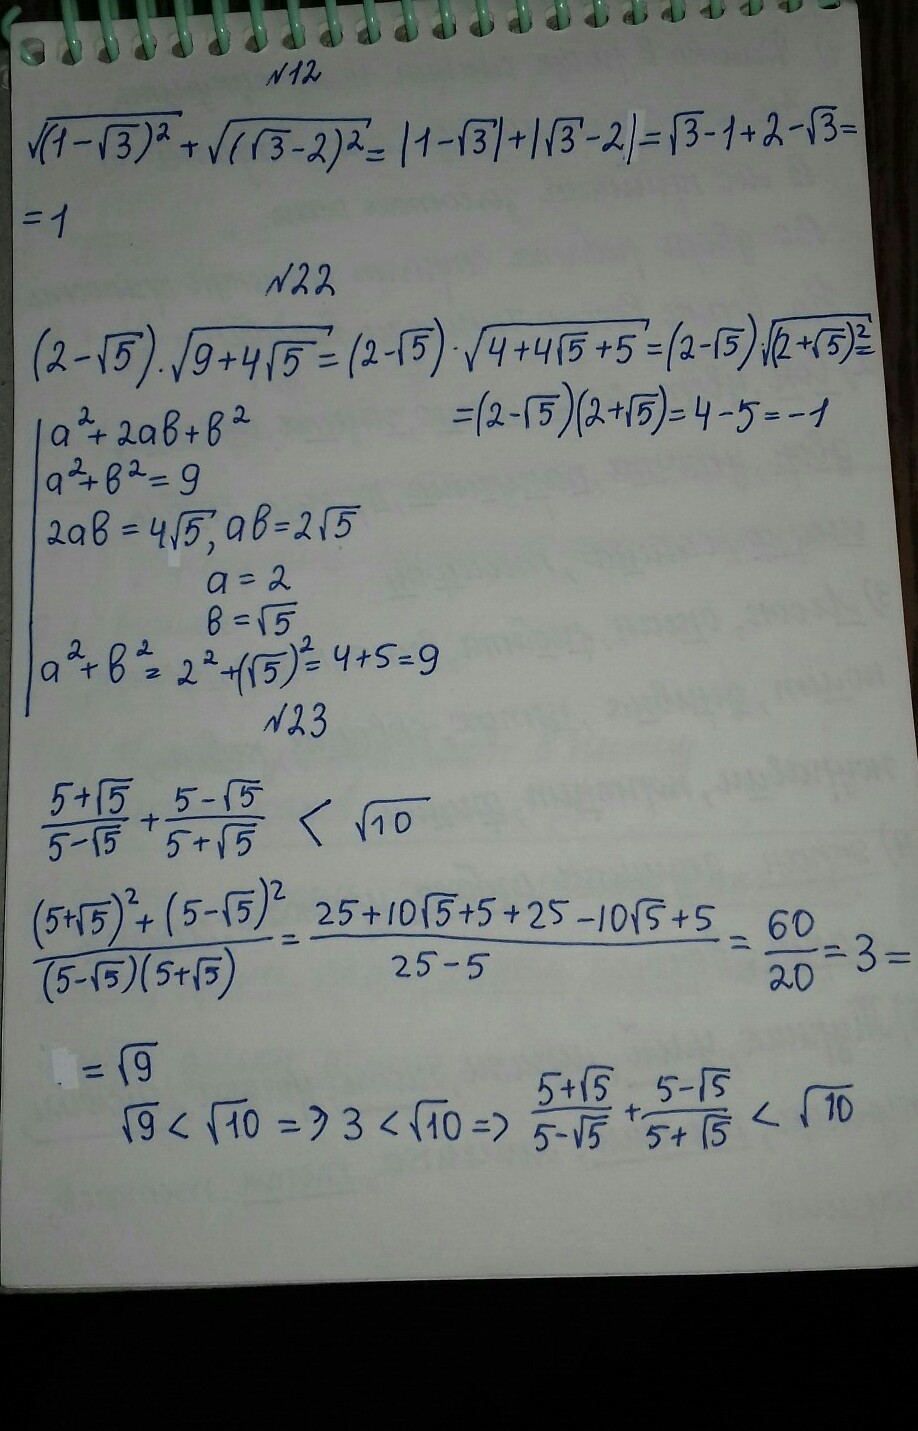 №12
√(1-√3)² + √(√3-2)² = |1-√3|+|√3-2| = √3-1+2-√3 =
= 1
№22
(2-√5)·√(9+4√5) = (2-√5)·√(4+4√5+5) = (2-√5)·√(2+√5)² =
= (2-√5)(2+√5) = 4-5 = -1
a²+2ab+b²
a²+b² = 9
2ab = 4√5, ab = 2√5
a = 2
b = √5
a²+b² = 2²+(√5)² = 4+5 = 9
№23
(5+√5)/(5-√5) + (5-√5)/(5+√5) < √10
((5+√5)²+(5-√5)²)/((5-√5)(5+√5)) = (25+10√5+5+25-10√5+5)/(25-5) = 60/20 = 3 =
= √9
√9 < √10 => 3 < √10 => (5+√5)/(5-√5) + (5-√5)/(5+√5) < √10